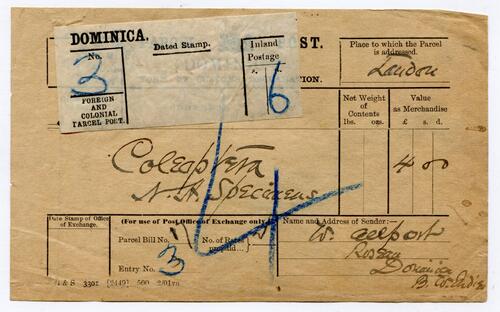 DOMINICA.
Dated Stamp.
No.
3
FOREIGN
AND
COLONIAL
PARCEL POST.
Inland
Postage
6
ST.
TION.
Place to which the Parcel
is addressed.
London
Net Weight
of
Contents
lbs. ozs.
Value
as Merchandise
£ s. d.
4 00
Coleoptera
N. H. Specimens
Date Stamp of Office
of Exchange.
(For use of Post Office of Exchange only.)
Parcel Bill No.
No. of Rates
prepaid...
Entry No. 3
Name and Address of Sender:—
W.
Roseau
Dominica
B. W. Indies
& S 3301 [2449] 500 2/01